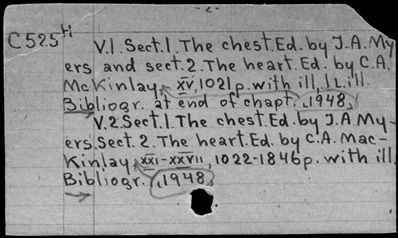 -2-
C525H
V.1.Sect.1.The chest.Ed.by J.A.My
ers and sect.2.The heart.Ed.by C.A.
McKinlay, XV,1021p.with ill,1 b.ill.
Bibliogr. at end of chapt. ,1948,
V.2.Sect.1.The chest.Ed.by J.A.My-
ers.Sect.2.The heart.Ed.by C.A.Mac-
Kinlay, XXI-XXVII, 1022-1846p.with ill.
Bibliogr. ,1948,